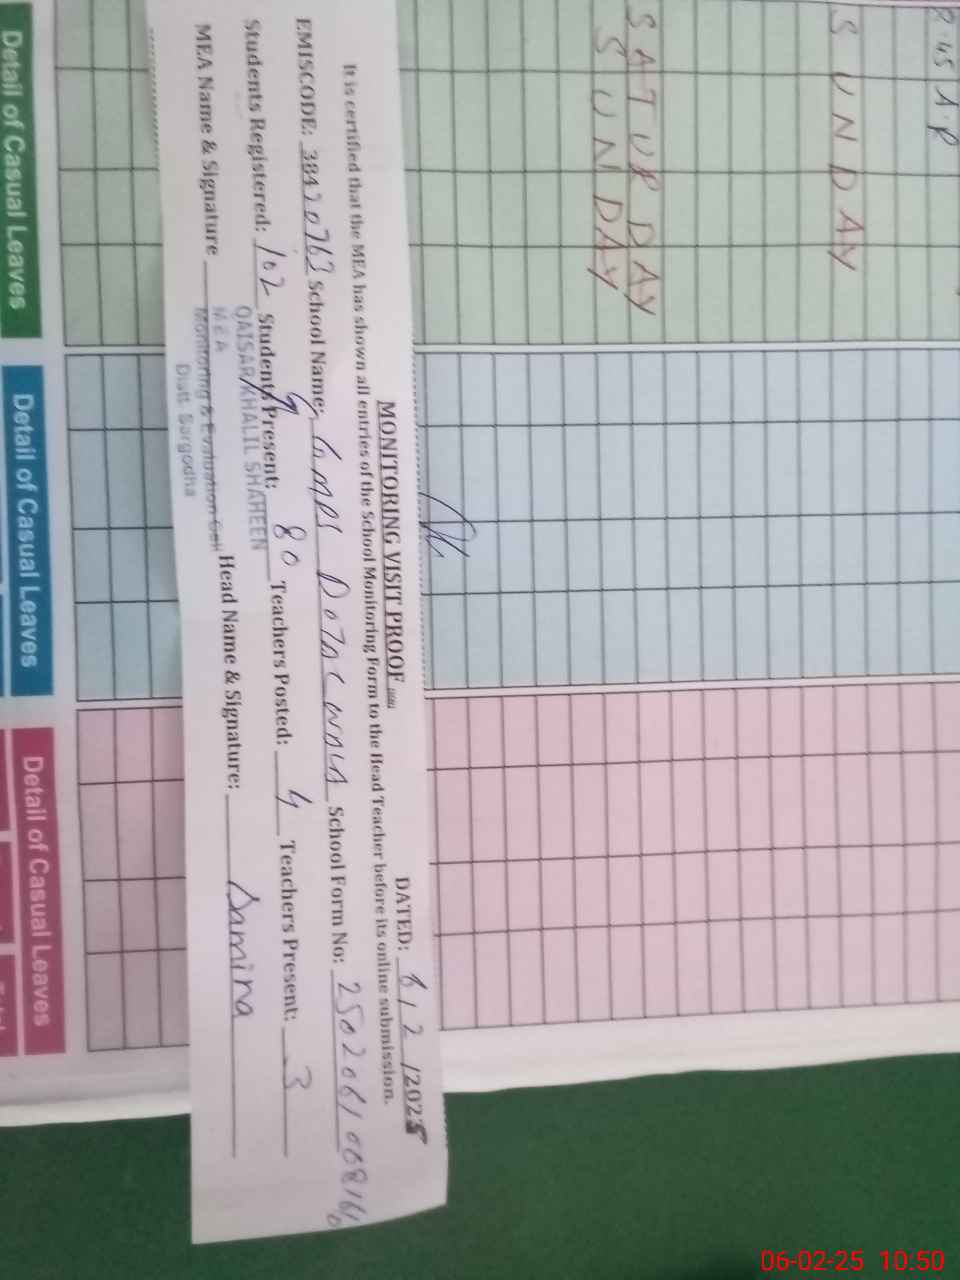 MONITORING VISIT PROOF
DATED: 6/2/2025
It is certified that the MEA has shown all entries of the School Monitoring Form to the Head Teacher before its online submission.
EMISCODE: 38420763 School Name: School Form No:
Students Registered: 102 Students Present: 80 Teachers Posted: 4 Teachers Present: 3
MEA Name & Signature Head Name & Signature: Samina
QAISAR KHALIL SHAHEEN
MEA
Monitoring & Evaluation Cell
Distt. Sargodha
SUNDAY
SATURDAY
SUNDAY
Detail of Casual Leaves
Detail of Casual Leaves
Detail of Casual Leaves
06-02-25 10:50